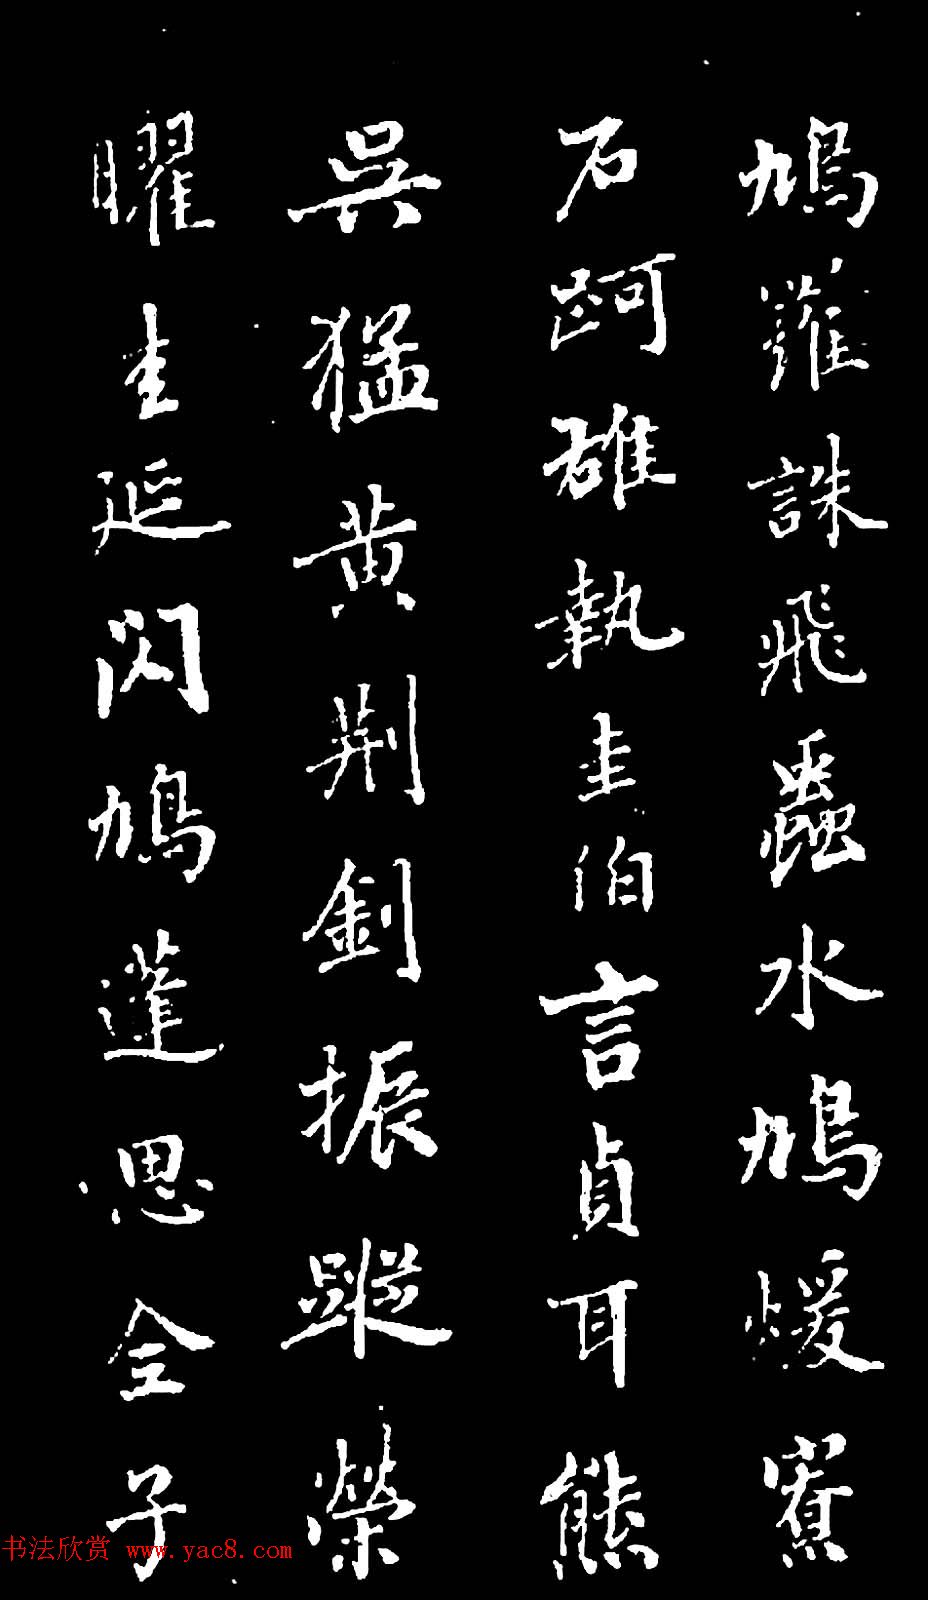 鳩羅誅飛蟲水鳩煖寮
石訶雄執圭伯言貞耳熊
吳猛黄荆釗振蹤榮
曜生延閃鳩蓮思全子
书法欣赏 www.yac8.com